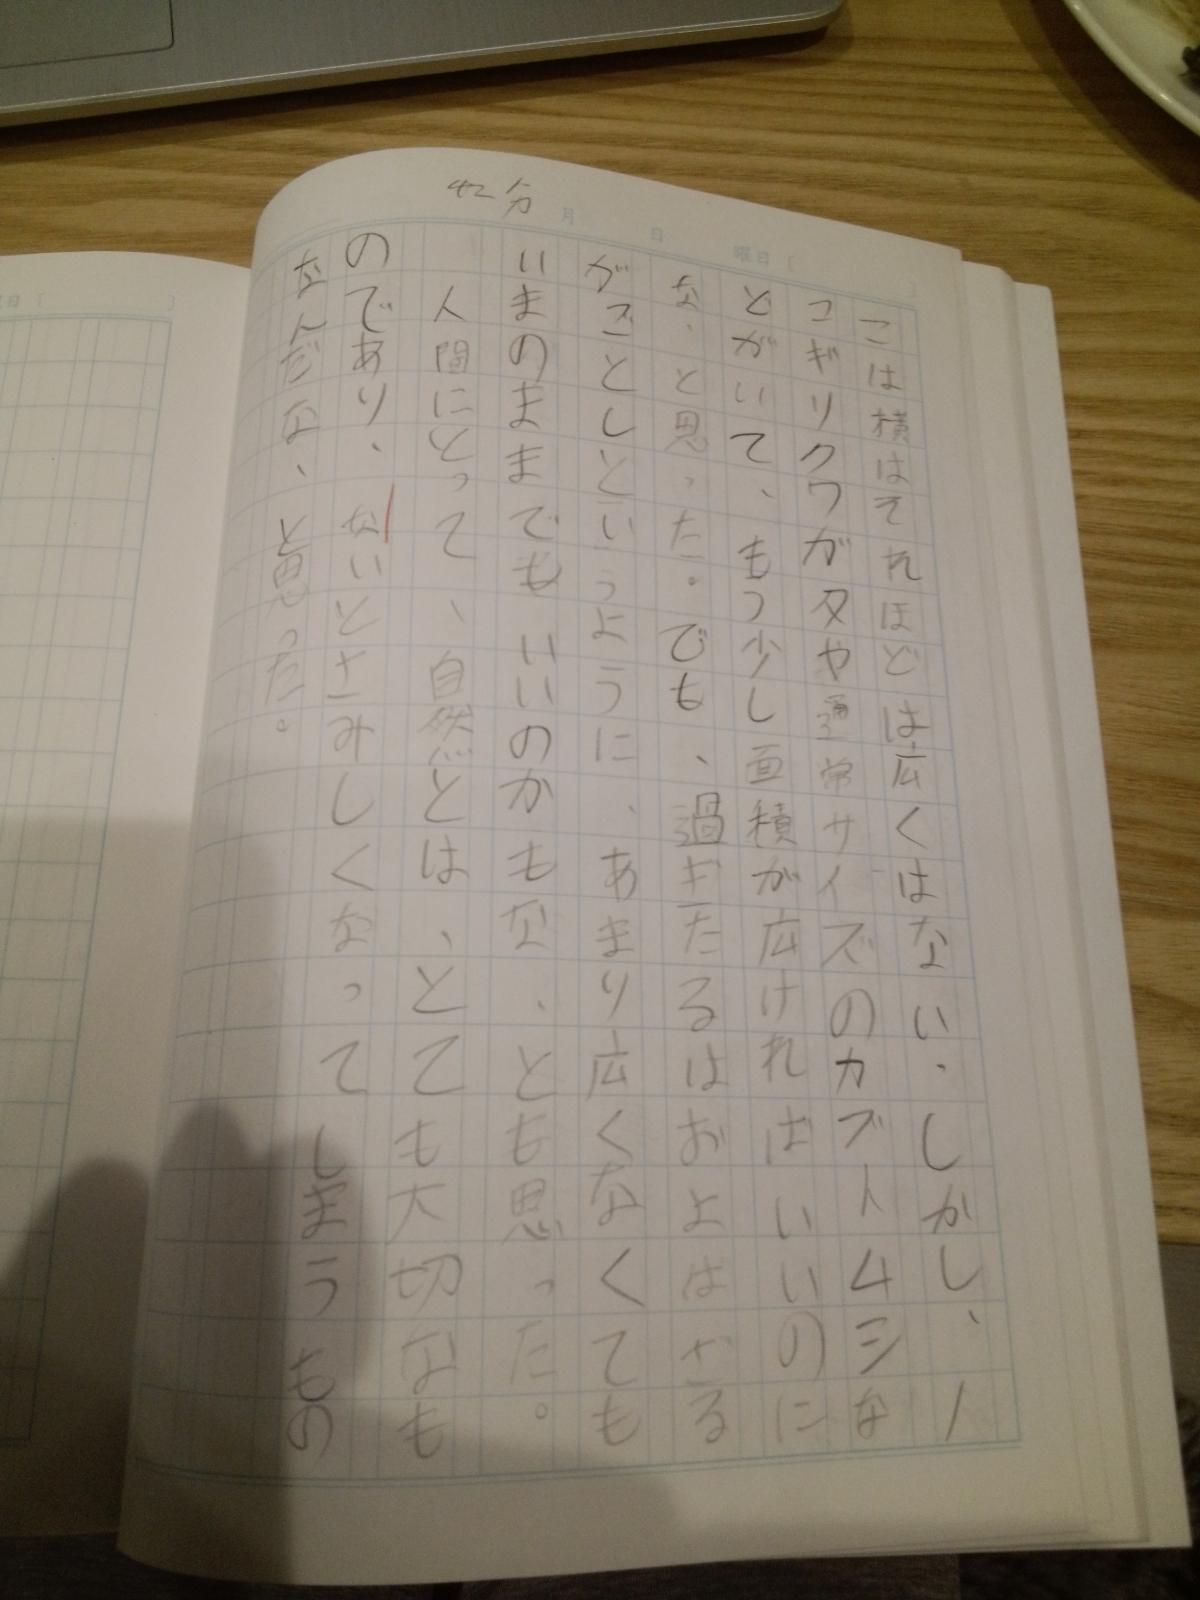 42分
月　日　曜日〔　　〕
こは横はそれほどは広くはない。しかし、ノ
コギリクワガタや通常サイズのカブトムシな
どがいて、もう少し面積が広ければいいのに
な、と思った。でも、過ぎたるはおよばざる
がごとしというように、あまり広くなくても
いまのままでもいいのかもな、とも思った。
人間にとって、自然とは、とても大切なも
のであり、ないとさみしくなってしまうもの
なんだな、と思った。
日〔　　〕